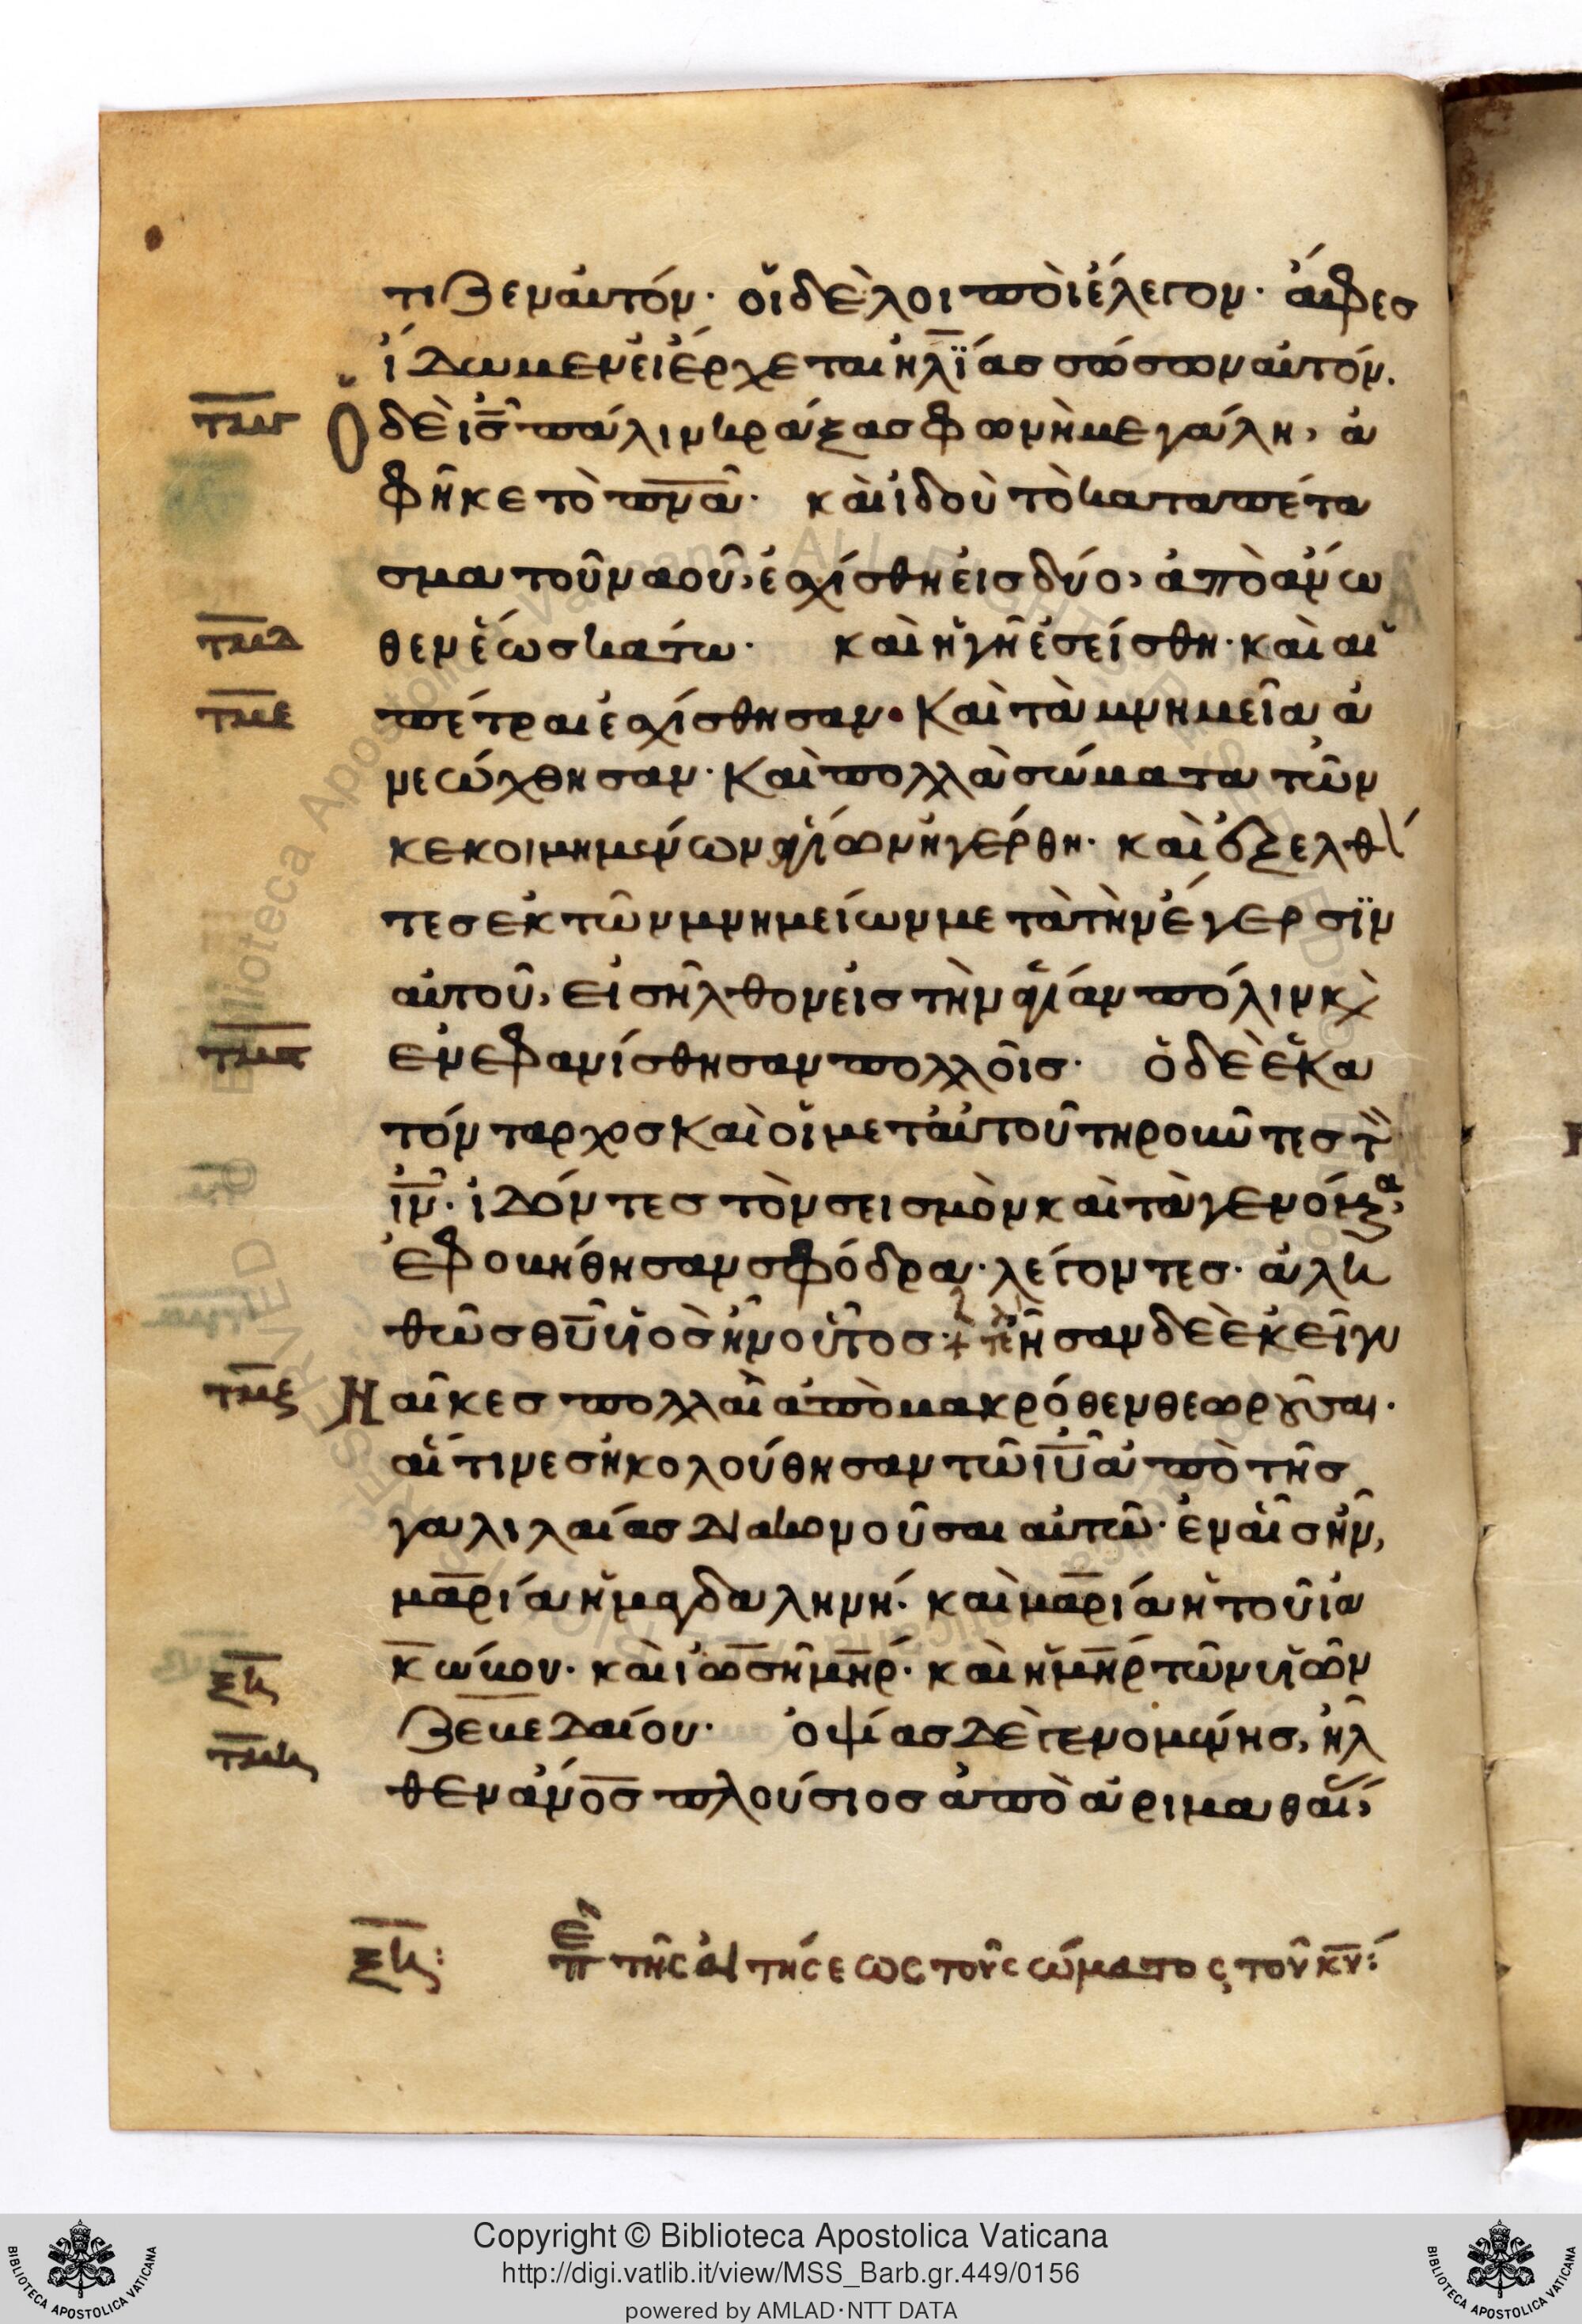 τιζεν αυτόν· οἱ δὲ λοιποὶ ἔλεγον· ἄφες
ἴδωμεν εἰ ἔρχεται ἠλΐας σώσων αὐτόν.
τμγ Ὁ δὲ ἰς̅ πάλιν κράξας φωνὴ μεγάλη, ἀ
φῆκε τὸ πν̅α̅· καὶ ἰδοὺ τὸ καταπέτα
σμα τοῦ ναοῦ, ἐσχίσθη εἰς δύο, ἀπὸ ἄνω
τμδ θεν ἕως κάτω· καὶ ἡ γῆ ἐσείσθη· καὶ αἱ
τμε πέτραι ἐσχίσθησαν· Καὶ τὰ μνημεῖα ἀ
νεώχθησαν· Καὶ πολλὰ σώματα τῶν
κεκοιμημένων ἁγίων ἠγέρθη· καὶ ἐξελθό
τες ἐκ τῶν μνημείων μετὰ τὴν ἔγερσϊν
αὐτοῦ, εἰσῆλθον εἰς τὴν ἁγίαν πόλιν κ
ἐνεφανίσθησαν πολλοῖς· ὁ δὲ ἑκα
τόνταρχος Καὶ οἱ μετ' αὐτοῦ τηροῦντες τ
ἰν̅· ἰδόντες τὸν σεισμὸν καὶ τὰ γενόμενα,
ἐφοβήθησαν σφόδρα· λέγοντες· ἀλη
θῶς θυ̅ υἱὸς ἦν οὗτος·+ ἦσαν δὲ ἐκεῖ γυ
τμζ Ν αῖκες πολλαὶ ἀπὸ μακρόθεν θεωροῦσαι·
αἵτινες ἠκολούθησαν τῶ ἰυ̅ ἀπὸ τῆς
γαλιλαίας διακονοῦσαι αὐτῶ· ἐν αἷς ἦν,
μαρία ἡ μαγδαληνή· καὶ μαρία ἡ τοῦ ἰα
κώβου· καὶ ἰωσῆ μη̅ρ· καὶ ἡ μη̅ρ τῶν υἱῶν
ξη ζεβεδαίου· ὀψίας δὲ γενομένης, ἦλ
τμη θεν ἄν̅ος πλούσιος ἀπὸ ἀριμαθαί,
ξη: πε τῆς αἰτήσεως τοῦ σώματος τοῦ κυ̅:
Copyright © Biblioteca Apostolica Vaticana
http://digi.vatlib.it/view/MSS_Barb.gr.449/0156
powered by AMLAD·NTT DATA